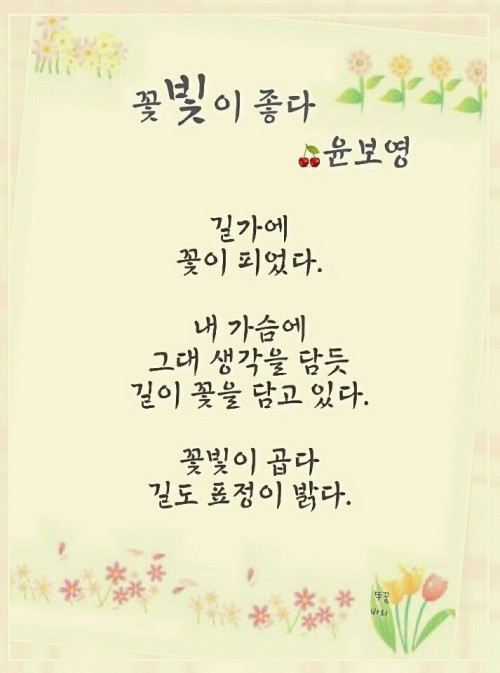 꽃빛이 좋다
윤보영
길가에
꽃이 피었다.
내 가슴에
그대 생각을 담듯
길이 꽃을 담고 있다.
꽃빛이 곱다
길도 표정이 밝다.